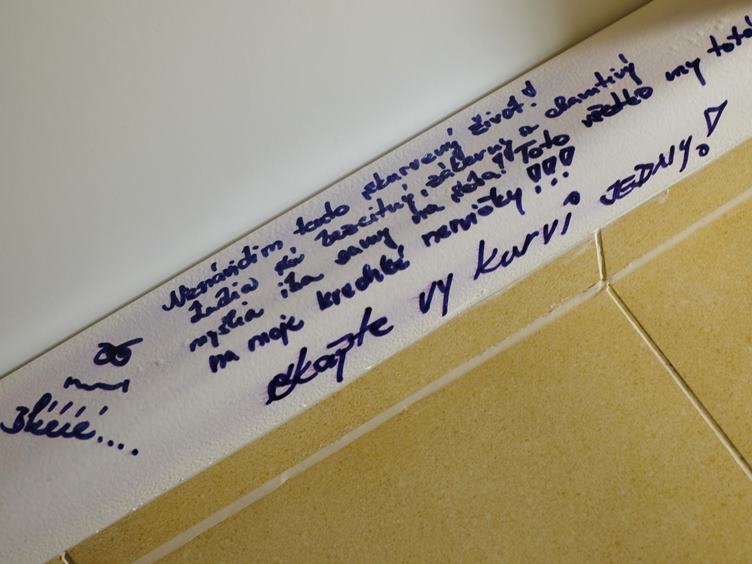 Nenávidím tento skurvený život!
Ľudia sú bezcitný, zákerny a chamtivý
myslia iba samy na seba! Toto všetko my totá
na moje krehké nervičky!!!
skapte vy kurvi JEDNY!
Bléé....